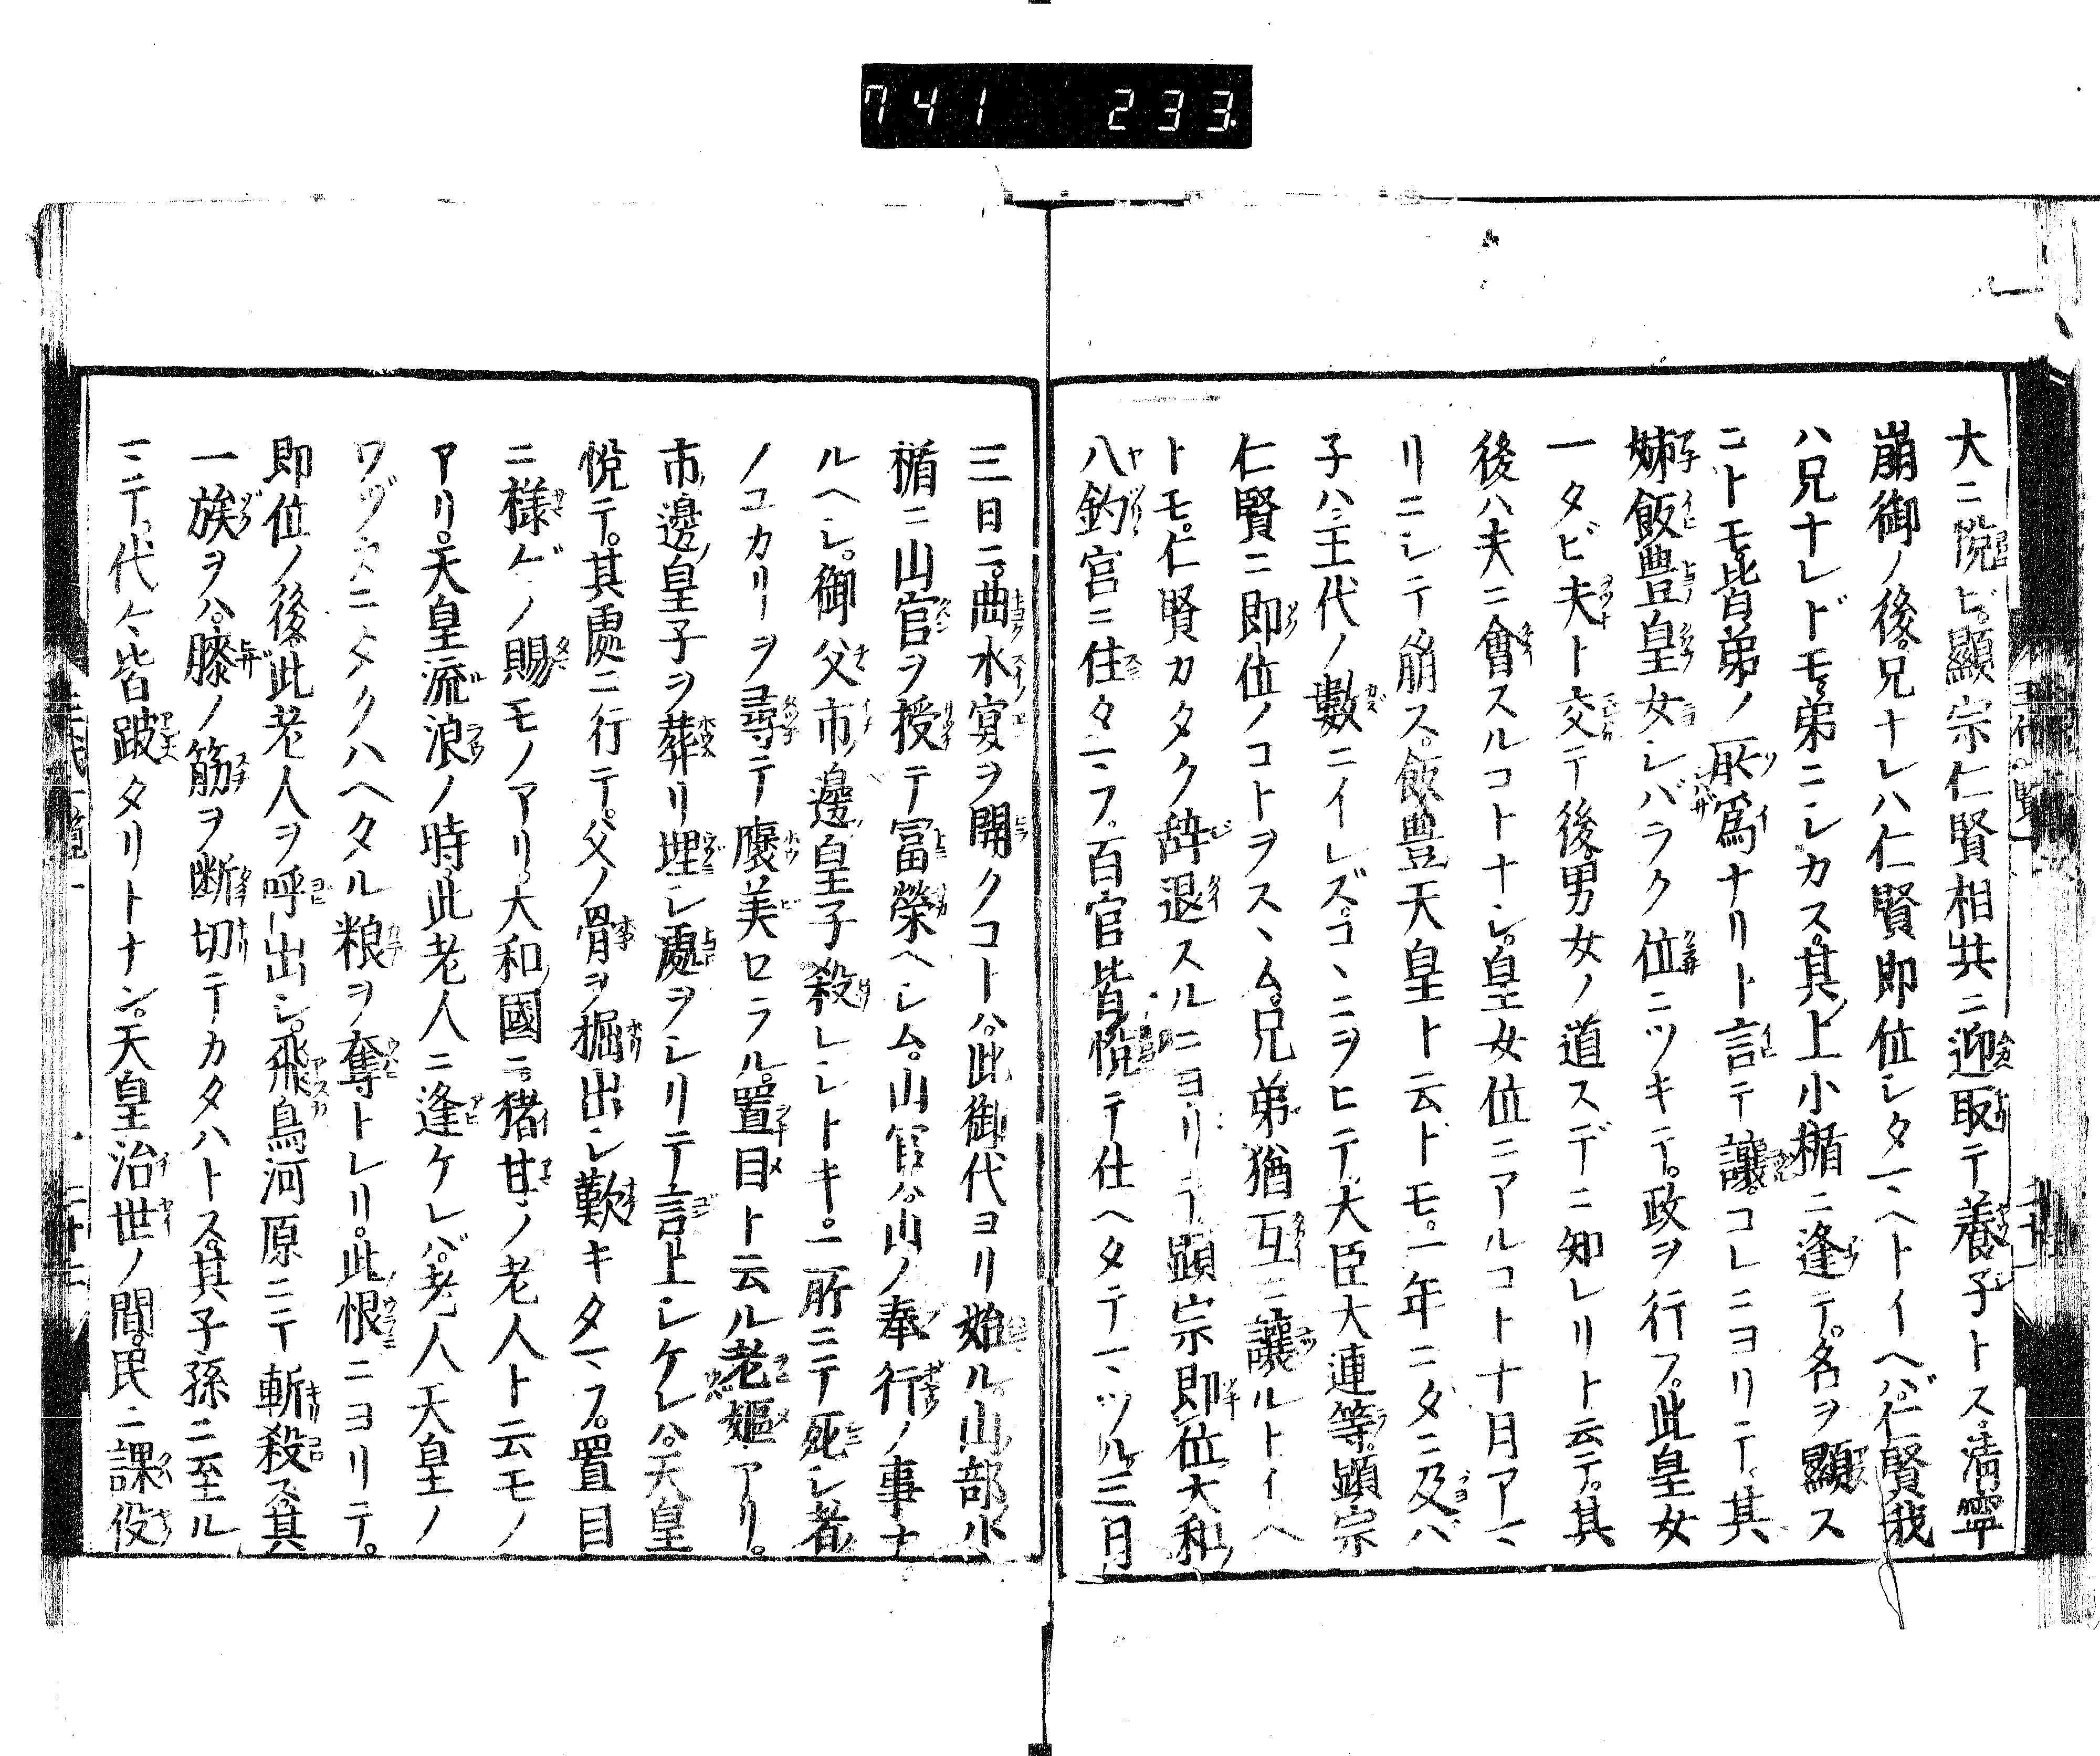 741 233.
大ニ悦ビ。顯宗仁賢相共ニ迎取テ養子トス。清寧
崩御ノ後。兄ナレハ仁賢即位シタマヘトイヘバ。仁賢我
ハ兄ナレドモ。弟ニシカス。其上小楯ニ逢テ。名ヲ顯ス
コトモ。皆弟ノ所爲ナリト言テ讓。コレニヨリテ。其
姊飯豊皇女シバラク位ニツキテ。政ヲ行フ。此皇女
一タビ夫ト交テ後。男女ノ道スデニ知レリト云テ。其
後ハ夫ニ會スルコトナシ。皇女位ニアルコト十月アマ
リニシテ崩ス。飯豊天皇ト云ドモ。一年ニタニ及バ
子ハ王代ノ數ニイレズ。コヽニヲヒテ。大臣大連等。顕宗
仁賢ニ即位ノコトヲスヽム。兄弟猶互ニ讓ルトイヘ
トモ。仁賢カタク辞退スルニヨリテ。顕宗即位大和
八釣宮ニ住タマフ。百官皆悦テ仕ヘタテマツル。三月
三日ニ。曲水宴ヲ開クコトハ。此御代ヨリ始ル。山部小
楯ニ山官ヲ授テ冨榮ヘシム。山官ハ。山ノ奉行ノ事ナ
ルヘシ。御父市邊皇子殺レシトキ。一所ニテ死シ者
ノユカリヲ尋テ襃美セラル。置目ト云ル老嫗アリ。
市邊皇子ヲ葬リ埋シ處ヲシリテ言上シケレハ。天皇
悦テ。其處ニ行テ。父ノ骨ヲ掘出シ歎キタマフ。置目
ニ樣〻ノ賜モノアリ。大和國ニ。猪甘ノ老人ト云モノ
アリ。天皇流浪ノ時。此老人ニ逢ケレバ。老人天皇ノ
ワヅカニタクハヘタル粮ヲ奪トレリ。此恨ニヨリテ。
即位ノ後。此老人ヲ呼出シ。飛鳥河原ニテ斬殺ス。其
一族ヲハ。膝ノ筋ヲ断切テカタハトス。其子孫ニ至ル
マテ。代々皆跛タリトナン。天皇治世ノ間。民ニ課役